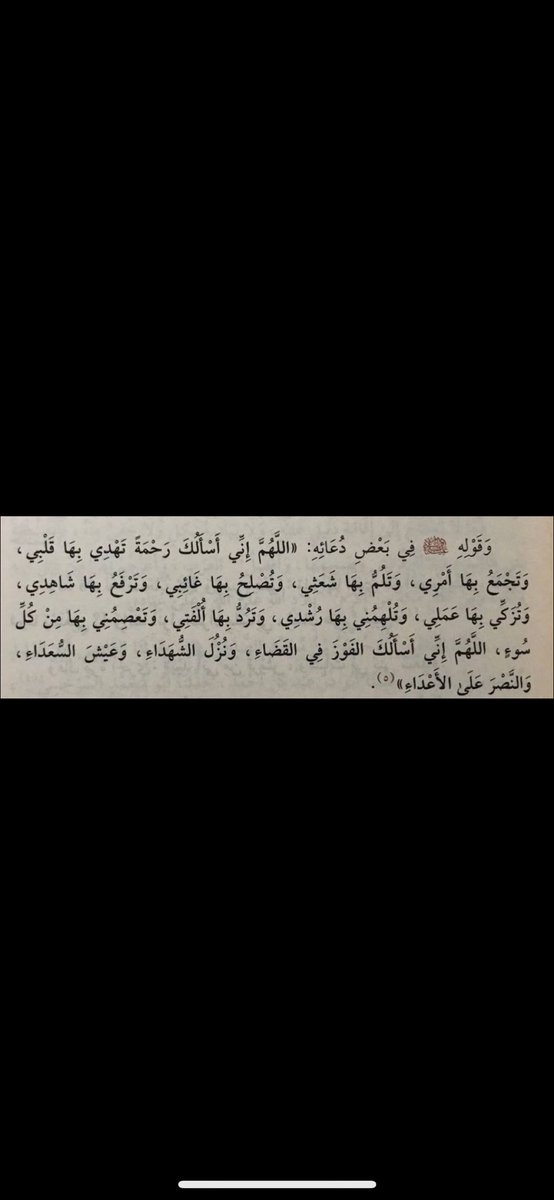 وَقَوْلِهِ ﷺ فِي بَعْضِ دُعَائِهِ: «اللَّهُمَّ إِنِّي أَسْأَلُكَ رَحْمَةً تَهْدِي بِهَا قَلْبِي،
وَتَجْمَعُ بِهَا أَمْرِي، وَتَلُمُّ بِهَا شَعَثِي، وَتُصْلِحُ بِهَا غَائِبِي، وَتَرْفَعُ بِهَا شَاهِدِي،
وَتُزَكِّي بِهَا عَمَلِي، وَتُلْهِمُنِي بِهَا رُشْدِي، وَتَرُدُّ بِهَا أُلْفَتِي، وَتَعْصِمُنِي بِهَا مِنْ كُلِّ
سُوءٍ، اللَّهُمَّ إِنِّي أَسْأَلُكَ الفَوْزَ فِي القَضَاءِ، وَنُزُلَ الشُّهَدَاءِ، وَعَيْشَ السُّعَدَاءِ،
وَالنَّصْرَ عَلَىٰ الأَعْدَاءِ»(٥).